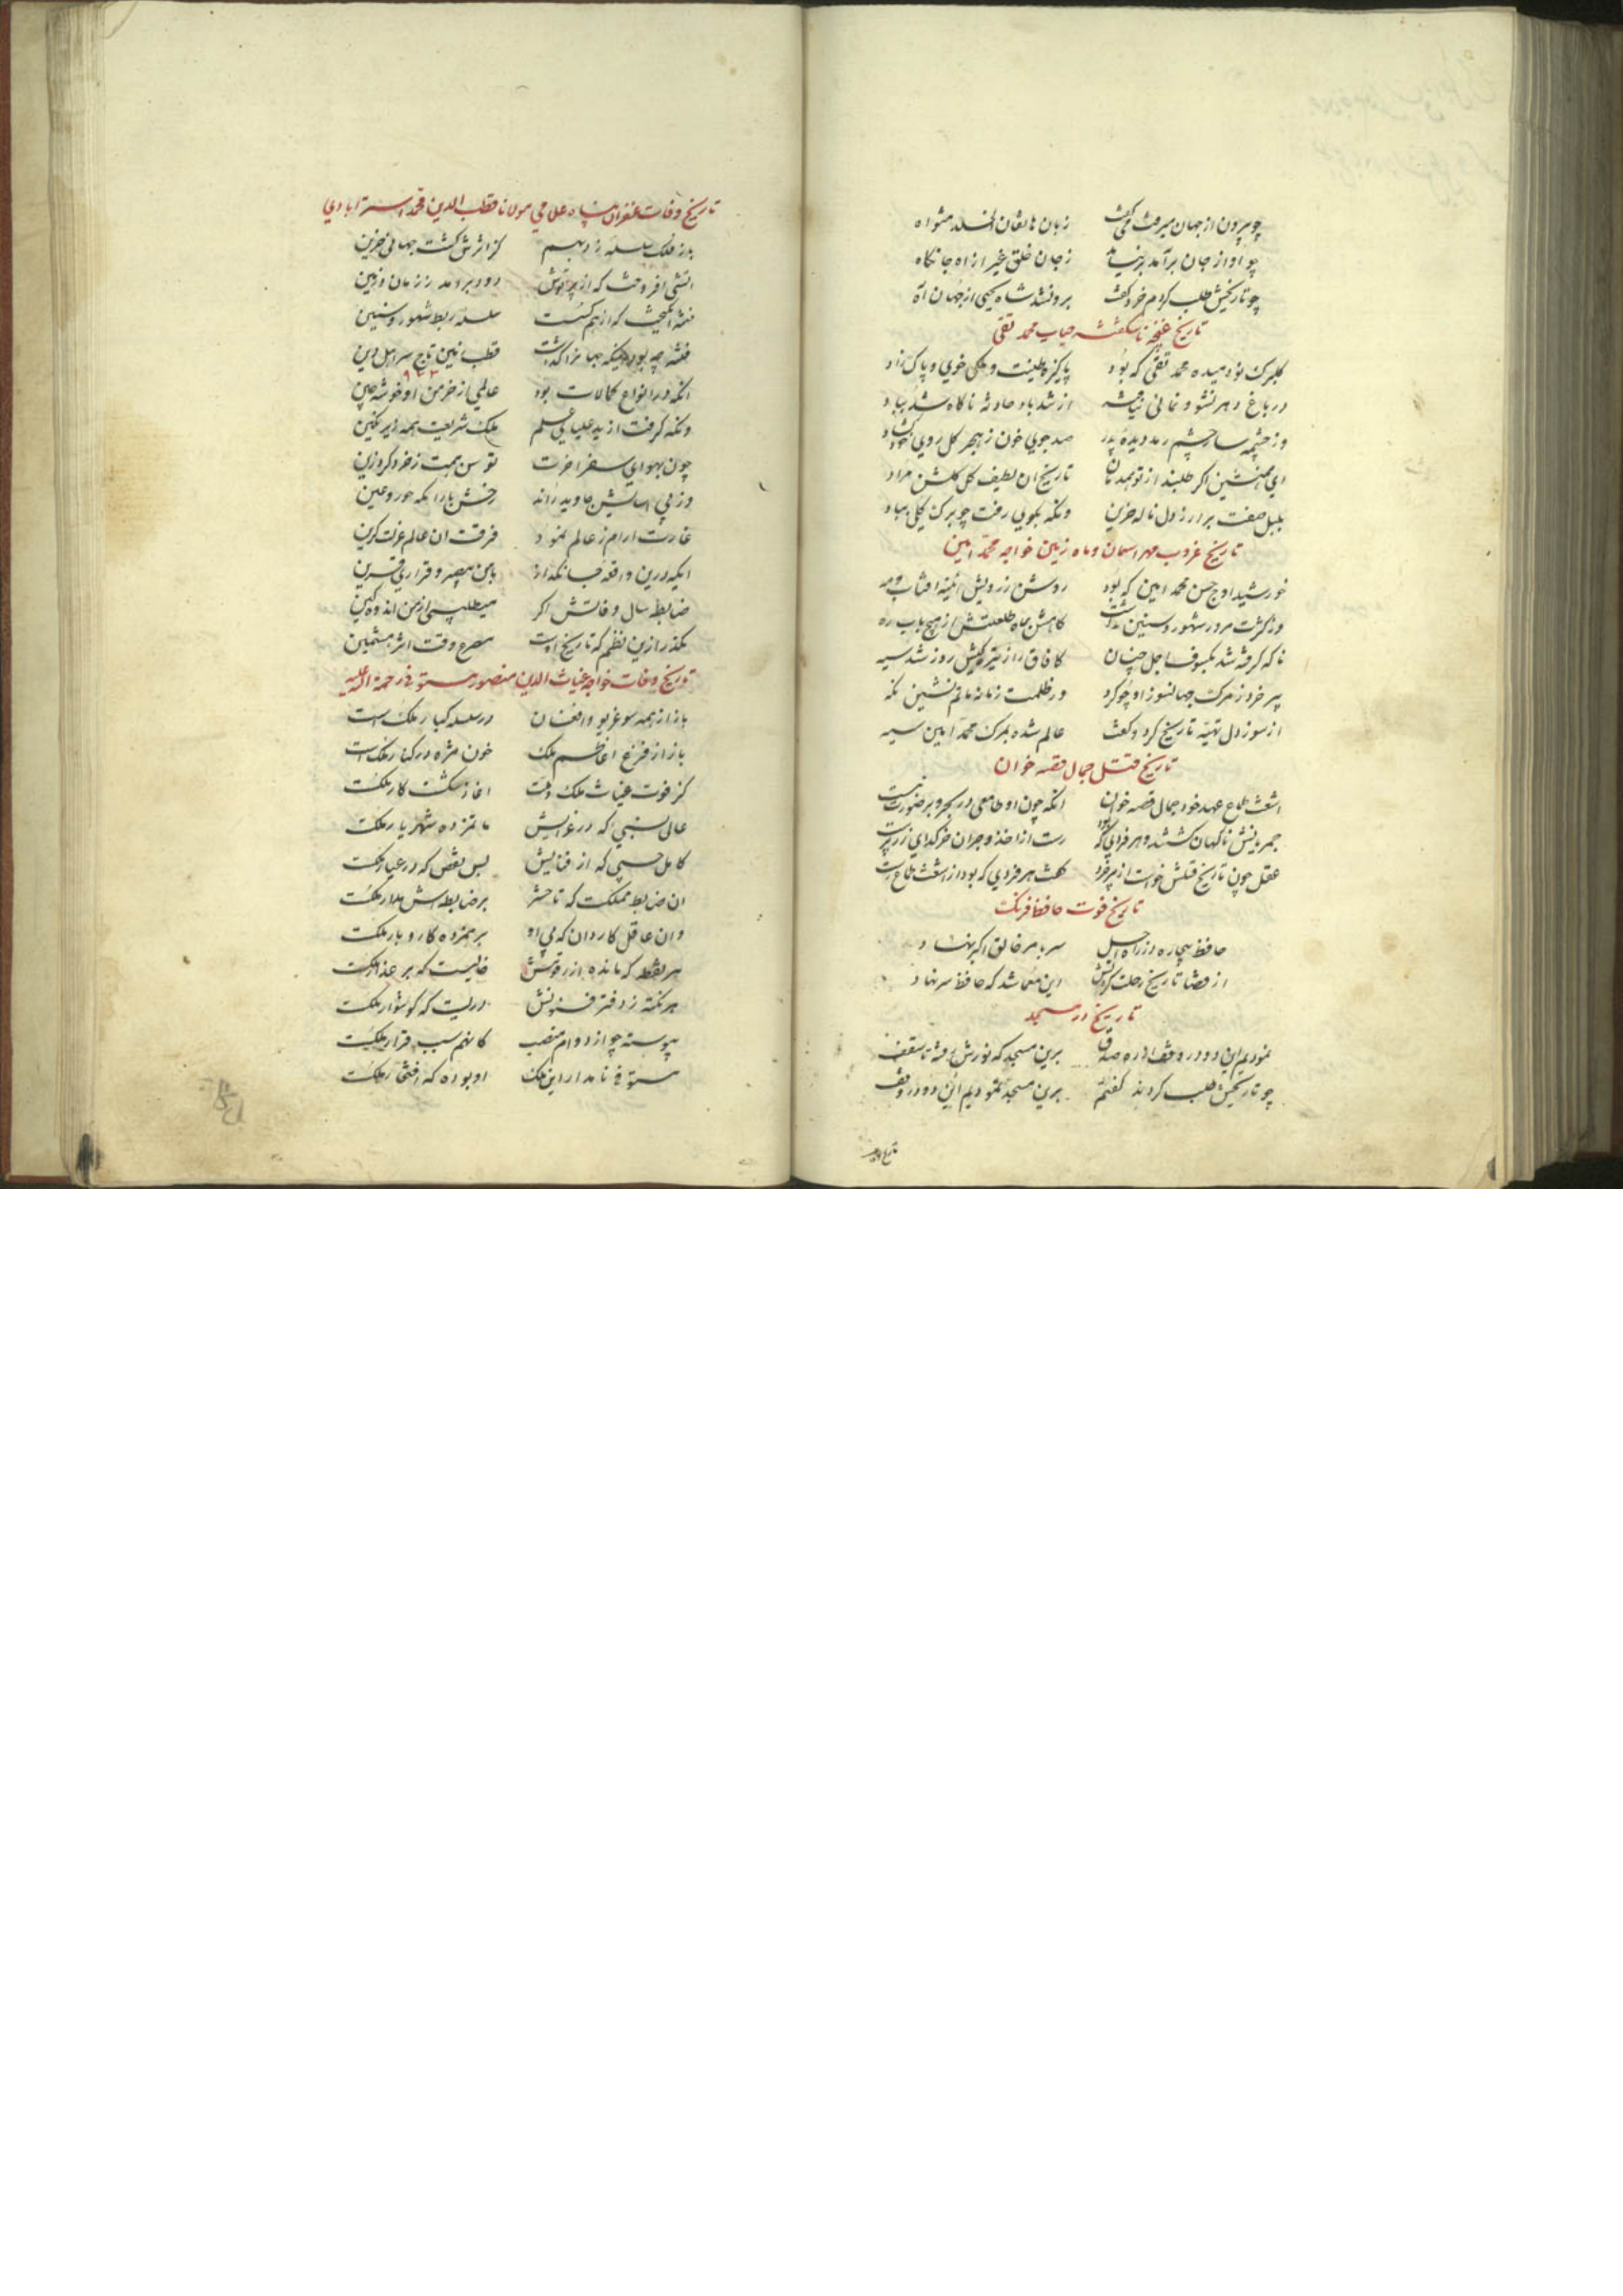 چو بیرون از جهان میرفت میگفت زبان هاتفان الخلد مثواه
چو اواز جان برآمد زجان خلق غیر از اه جانکاه
چو تاریخش طلب کردم خرد گفت برون شد شاه یحیی از جهان آه
تاریخ غنچه ناشکفته محمد تقی
کلبرک نودمیده محمد تقی که بود پاکیزه طینت و ملکی خوی و پاک زاد
در باغ دهر نشو و نمائی نیافته از تندباد حادثه ناکاه شد بباد
وز چشمه سار چشم رمد دیده پدر صد جوی خون ز هجر کل روی
ای همنشین اگر طلبند از تو همدمان تاریخ ان لطیف کل کلشن مراد
بلبل صفت برار ز دل ناله حزین ونکه بکویی رفت چو برک کلی بباد
تاریخ غروب مهر اسمان و ماه زمین خواجه محمد امین
خورشید اوج حسن محمد امین که بود روشن ز رویش ائینه افتاب و مه
وز کثرت مرور شهور و سنین نداشت کاهش بماه طلعتش از هیچ باب ره
ناکه کرفته شد بکسوف اجل چنان کافاق را ز تیرگیش روز شد سیه
پیر خرد ز مرک جهانسوز او چو کرد در ظلمت زمانه ماتم نشین نکه
از سوز دل تهیه تاریخ کرد و گفت عالم شده بمرک محمد امین سیه
تاریخ قتل جمال قصه خوان
اشعث طماع عهد خود جمال قصه خوان انکه چون او طامعی در بحر و بر صورت نبست
عقل چون تاریخ قتلش خواست از پیر خرد گفت هر فردی که بود از اشعث طماع رست
تاریخ فوت حافظ فرنک
حافظ بیچاره در راه اجل سر بامر خالق اکبر نهاد
از قضا تاریخ رحلت کردنش این معما شد که حافظ سر نهاد
تاریخ در مسجد
نمودیم این دو در وقف از ره صدق برین مسجد که نورش رفته تا سقف
چو تاریخش طلب کردند گفتم برین مسجد نمودیم این دو در وقف
تاریخ وفات
تاریخ وفات غفران پناه علامی مولانا قطب الدین محمد استرابادی
باز فلک سلسله زد بهم کز اثرش گشت جهانی حزین
اتشی افروخت که از پرتوش دود برامد ز زمان و زمین
فتنه انگیخت که از هم گسست سلسله ربط شهور و سنین
فتنه چه بود اینکه جهان را گذاشت قطب زمین تاج سر اهل دین
۹۴۳
انکه در انواع کمالات بود عالمی از خرمن او خوشه چین
ونکه گرفت از ید علیای علم ملک شریعت همه زیر نکین
چون بهوای سفر اخرت توسن همت ز خرد کرد زین
وز پی اسایش جاوید راند رخش بارامگه حور و عین
غارت ارام ز عالم نمود فرقت ان عالم عزلت گزین
ایکه درین واقعه جانگداز با من بیصبر و قراری قرین
ضابط سال وفاتش اگر میطلبی از من اندوهگین
بگذر ازین نظم که تاریخ اوست مصرع وقت اثر مثمنین
تاریخ وفات خواجه غیاث الدین منصور مستوفی رحمة الله علیه
باز از همه سو غریو و افغان در سلسله کبار ملک است
باز از فزع اعاظم ملک خون مژه در کنار ملکست
کز فوت غیاث ملک و ملت اغاز شکست کار ملکست
عالی نسبی که در عزایش ماتم زده شهریار ملکست
کامل حسبی که از فنایش بس نقص که در عیار ملکست
ان ضابط مملکت که تا حشر بر ضابطه اش مدار ملکست
وان عاقل کاردان که بی او بر همزده کار و بار ملکست
هر نقطه که مانده از رقومش خالیست که بر عذار ملکست
هر نکته ز دفتر فنونش دریست که گوشوار ملکست
پیوسته چو از دوام منصب کانهم سبب قرار ملکست
مستوفی نامدار این ملک او بوده که افتخار ملکست